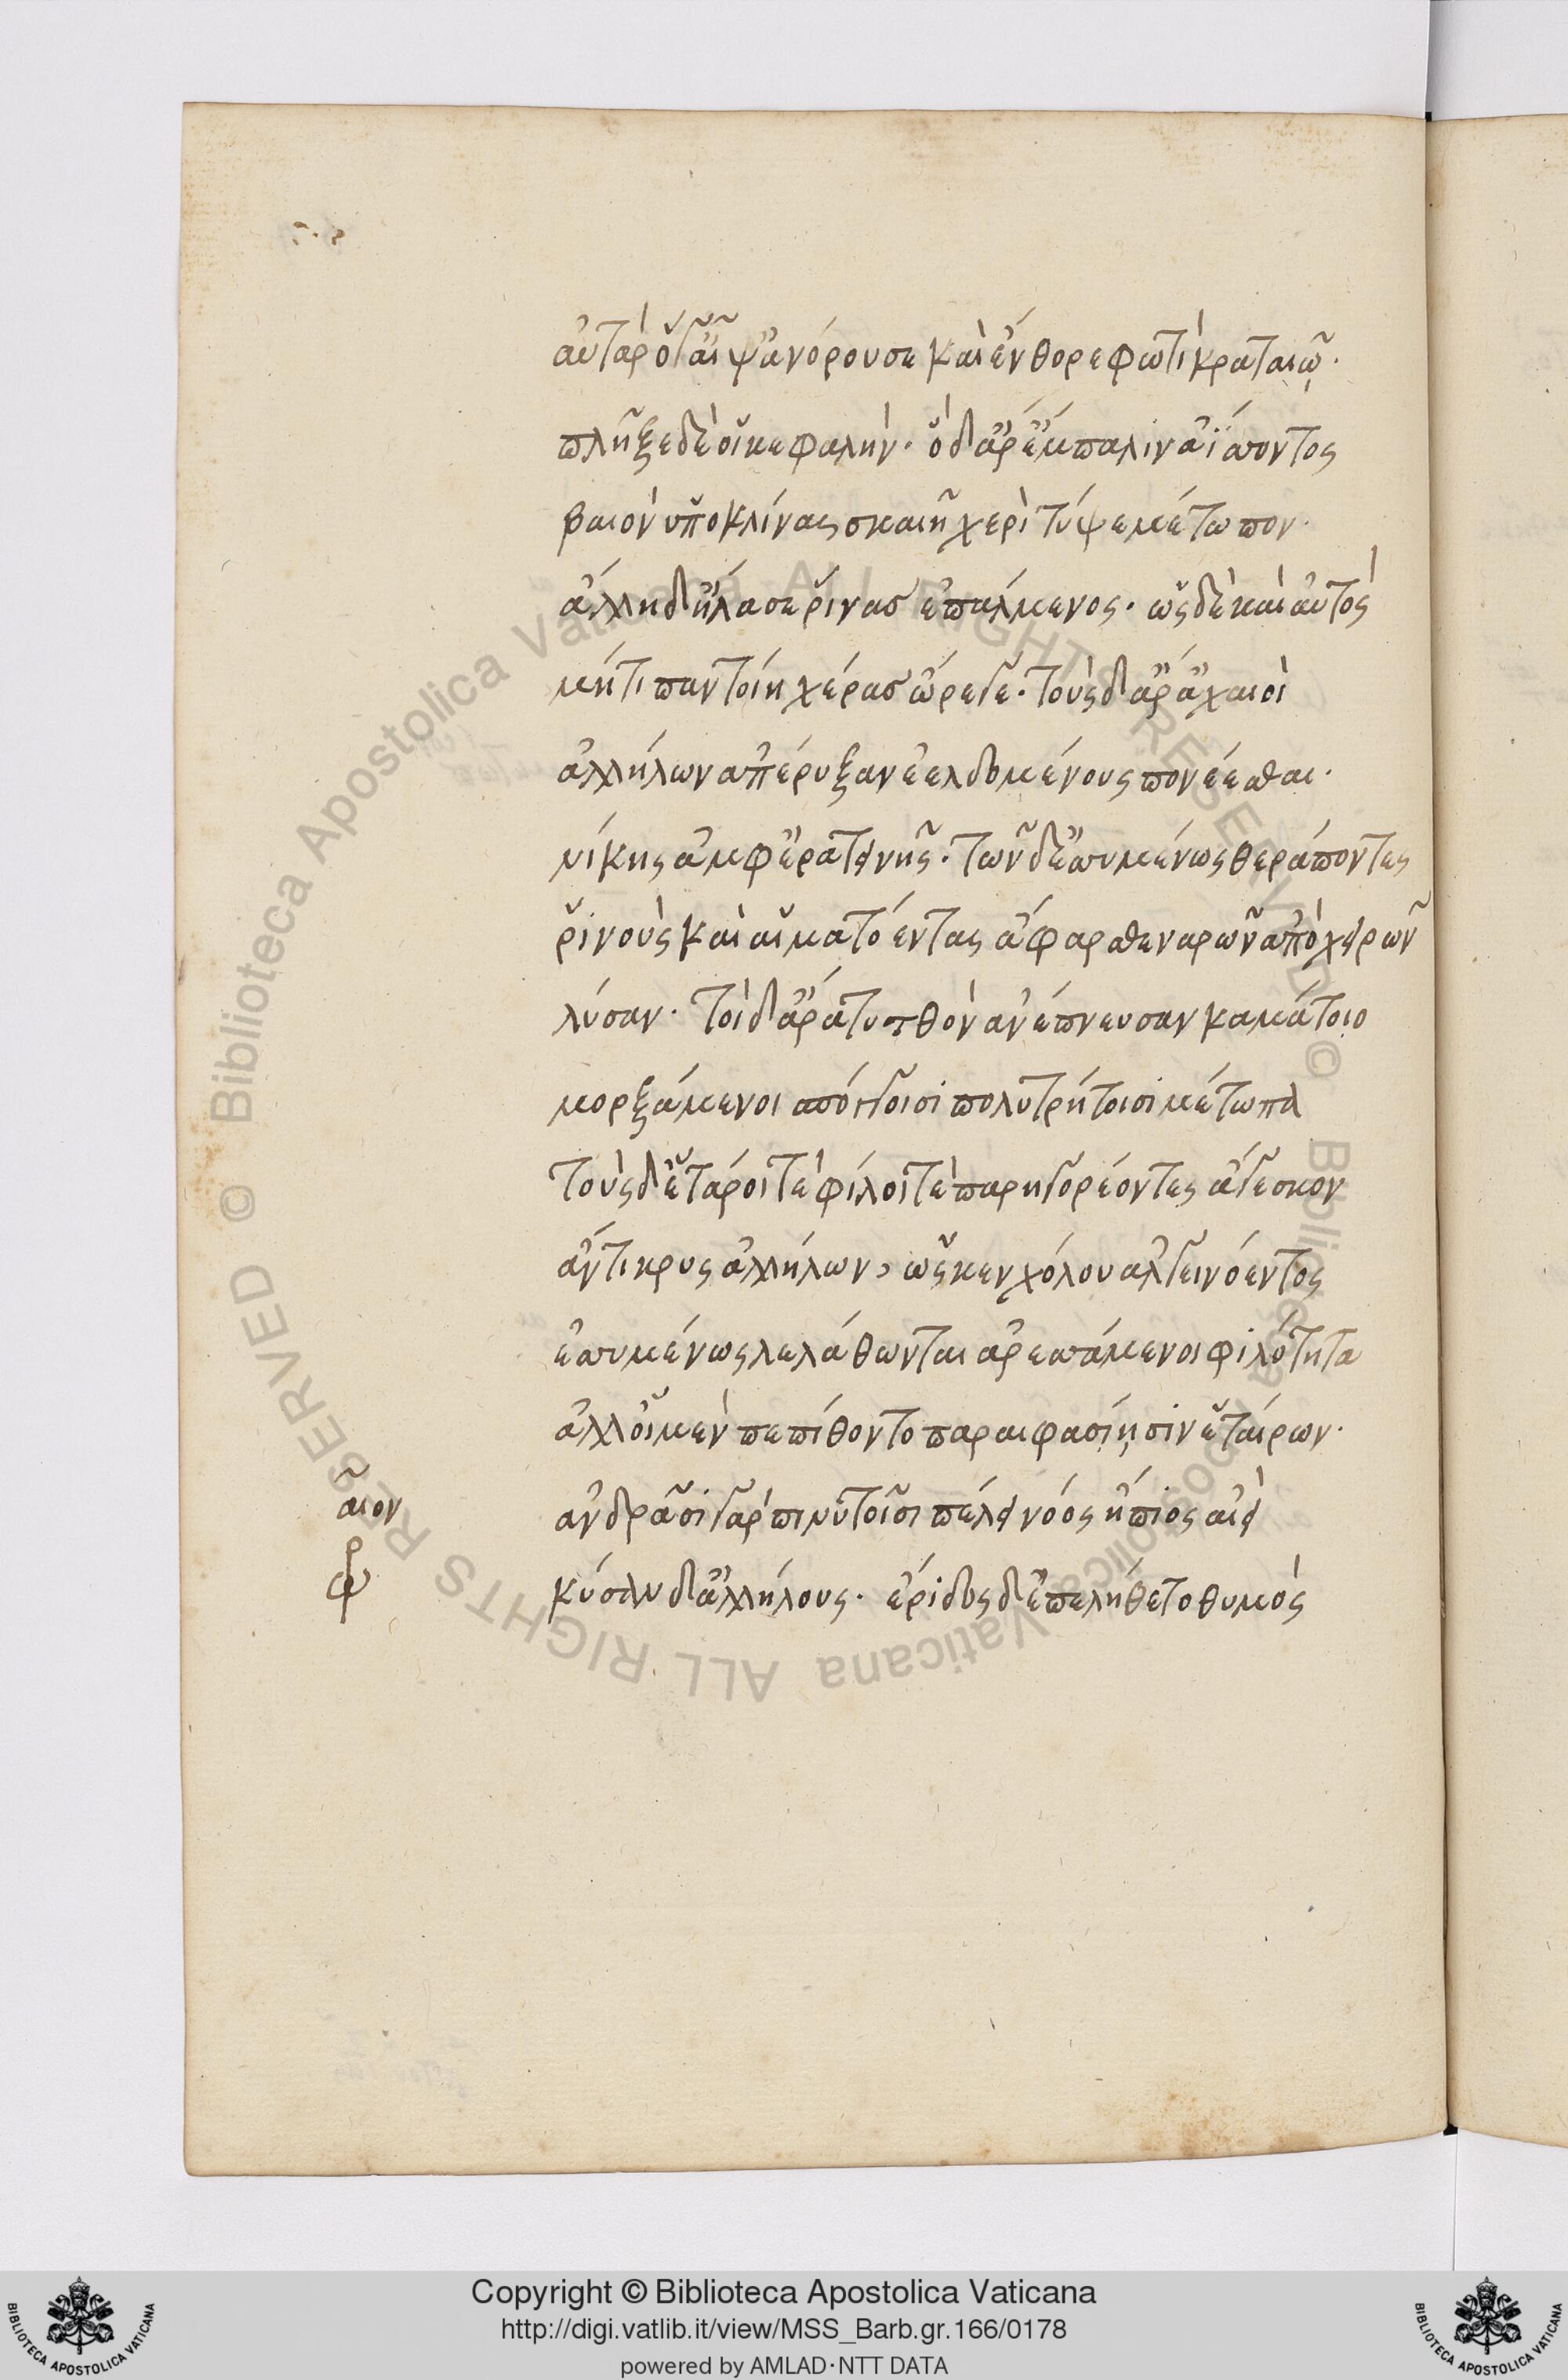 αὐτὰρ ὅγ' αἶψ' ἀνόρουσε καὶ ἔνθορε φωτὶ κραταιῷ·
πλῆξε δέ οἱ κεφαλήν· ὁ δ' ἄρ' ἔμπαλιν ἀΐσσοντος
βαιὸν ὑποκλίνας σκαιῇ χερὶ τύψε μέτωπον·
ἄλλη δ' ἤλασε ῥίνας ἐπάλμενος· ὣς δὲ καὶ αὐτὸς
μήτι παντοίη χέρας ὤρεγε· τοὺς δ' ἄρ' ἀχαιοὶ
ἀλλήλων ἀπέρυξαν ἐελδομένους πονέεσθαι·
νίκης ἀμφ' ἐρατεινῆς· τῶν δ' ἐσσυμένως θεράποντες
ῥινοὺς καὶ αἱματόεντας ἄφαρ σθεναρῶν ἀπὸ χειρῶν
λύσαν· τοὶ δ' ἄρα τυτθὸν ἀνέπνευσαν καμάτοιο
μορξάμενοι σπόγγοισι πολυτρήτοισι μέτωπα
τοὺς δ' ἕταροί τε φίλοι τε παρηγορέοντες ἄγεσκον
ἄντικρυς ἀλλήλων, ὥς κεν χόλου ἀλγεινόεντος
ἐσσυμένως λελάθωνται ἀρεσσάμενοι φιλότητα
ἀλλ' οἱ μὲν πεπίθοντο παραιφασίῃσιν ἑταίρων·
ἀνδράσι γὰρ πινυτοῖσι πέλει νόος ἤπιος αἰεί
κύσαν δ' ἀλλήλους· ἔριδος δ' ἐπελήθετο θυμὸς
Copyright © Biblioteca Apostolica Vaticana
http://digi.vatlib.it/view/MSS_Barb.gr.166/0178
powered by AMLAD·NTT DATA